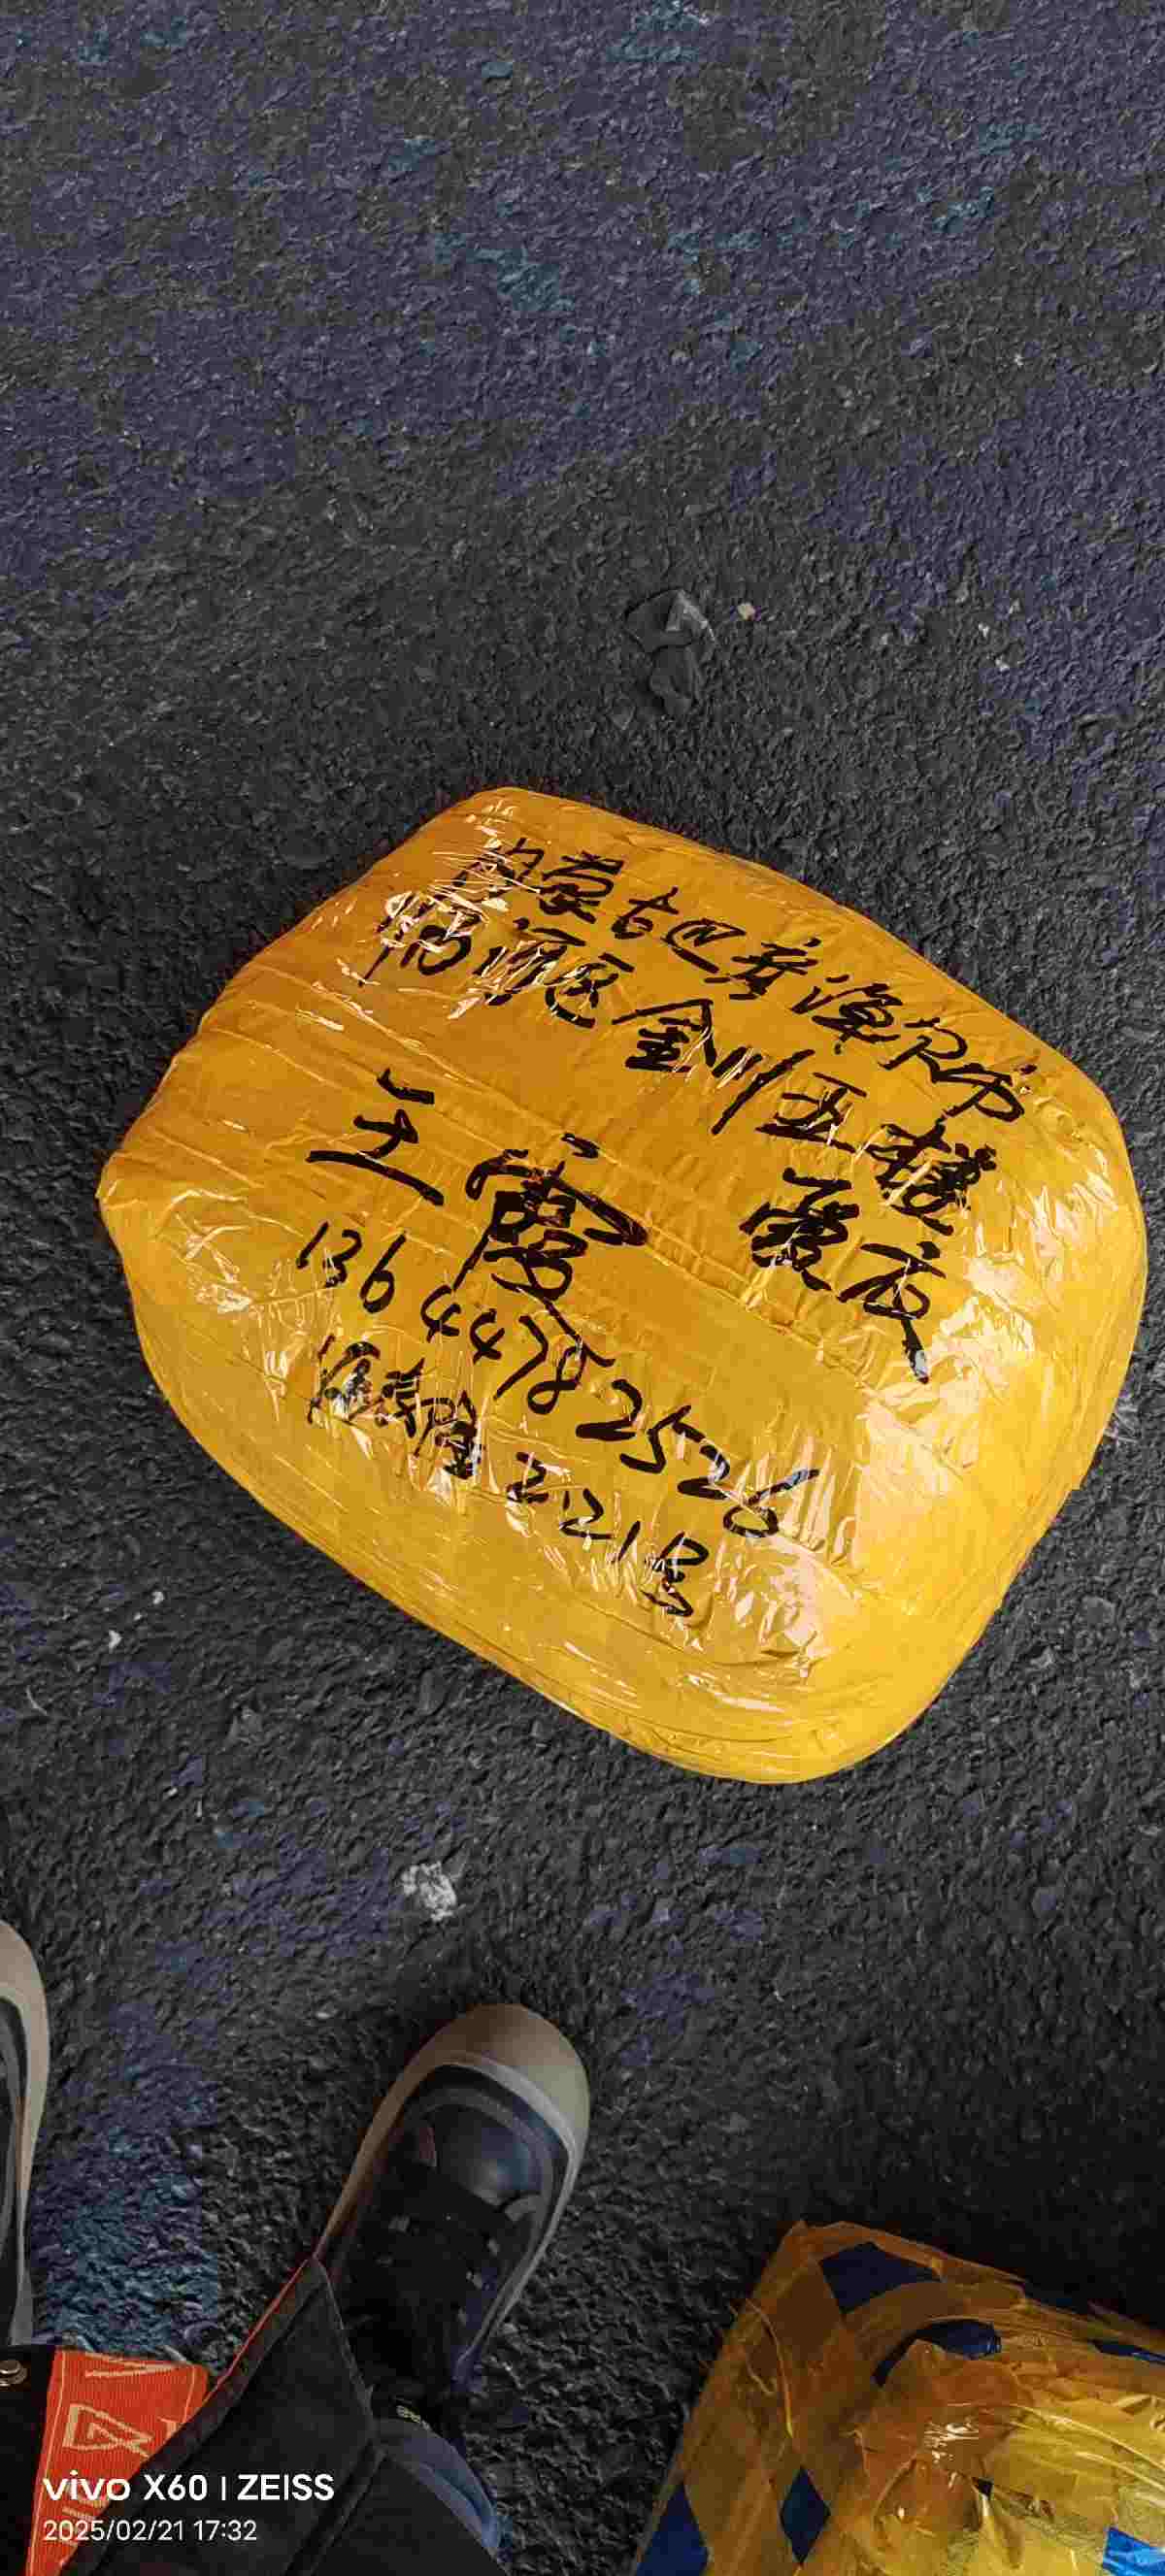 内蒙古巴彦淖尔市
临河区金川五楼
王霞
136 4478 2526
2-21号
vivo X60 | ZEISS
2025/02/21 17:32